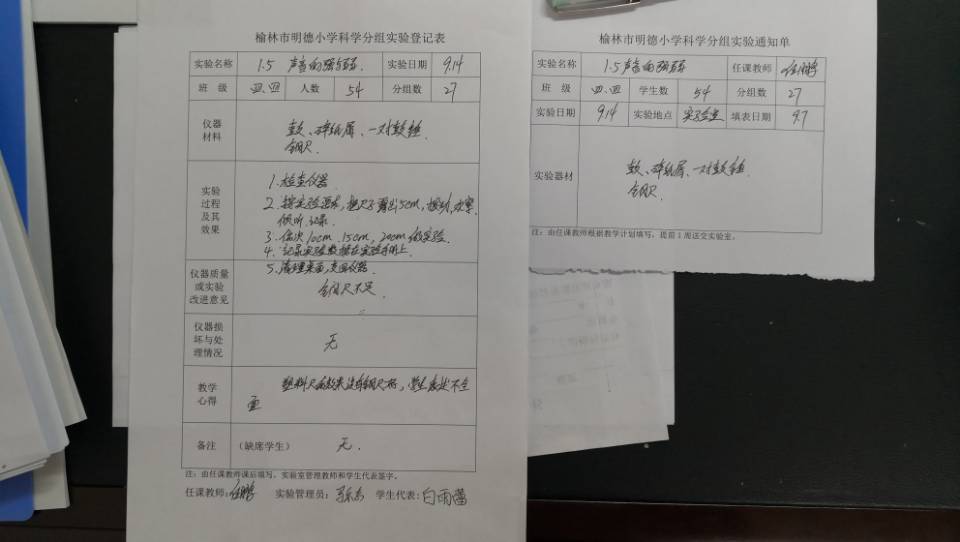 榆林市明德小学科学分组实验登记表
实验名称 1.5 声音的强与弱 实验日期 9.14
班 级 四.四 人数 54 分组数 27
仪器材料 鼓、碎纸屑、一对鼓锤.
钢尺.
实验过程及其效果 1.检查仪器
2.按实验要求,把尺子露出5cm,拨动,观察,
倾听.记录.
3.依次10cm.15cm,20cm做实验.
4.记录实验数据在实验手册上.
5.清理桌面,交回仪器.
仪器质量或实验改进意见 钢尺不足
仪器损坏与处理情况 无
教学心得 塑料尺 效果没有钢尺好,学生表述不全
面
备注 (缺席学生) 无.
注:由任课教师课后填写,实验室管理教师和学生代表签字。
任课教师: 实验管理员: 学生代表:白雨蕾
榆林市明德小学科学分组实验通知单
实验名称 1.5声音的强弱 任课教师
班 级 四.四 学生数 54 分组数 27
实验日期 9.14 实验地点 实验室 填表日期 9.7
实验器材 鼓、碎纸屑、一对鼓锤.
钢尺.
注:由任课教师根据教学计划填写,提前1周送交实验室。